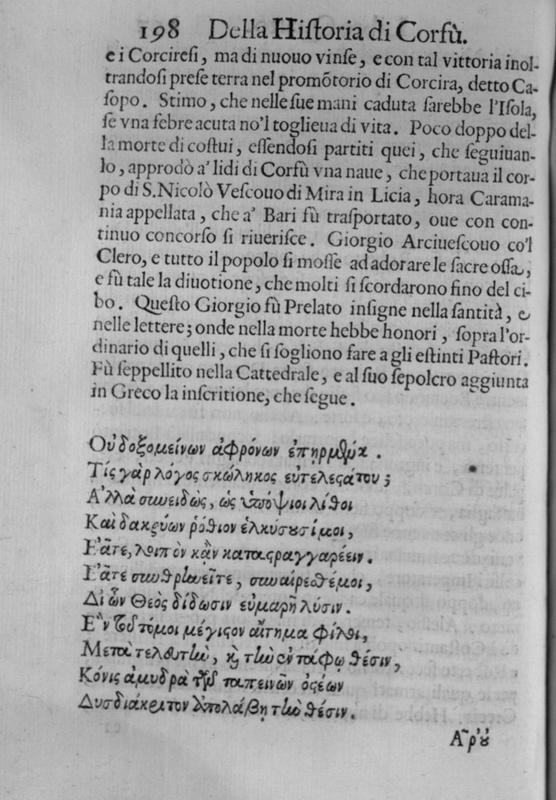 198 Della Hiſtoria di Corfù.
e i Corcireſi, ma di nuouo vinſe, e con tal vittoria inol-
trandoſi preſe terra nel promõtorio di Corcira, detto Ca-
ſopo. Stimo, che nelle ſue mani caduta ſarebbe l'Iſola,
ſe vna febre acuta no'l toglieua di vita. Poco doppo del-
la morte di coſtui, eſſendoſi partiti quei, che ſeguiuan-
lo, approdò a' lidi di Corfù vna naue, che portaua il cor-
po di S. Nicolò Veſcouo di Mira in Licia, hora Carama-
nia appellata, che a' Bari fù traſportato, oue con con-
tinuo concorſo ſi riueriſce. Giorgio Arciueſcouo co'l
Clero, e tutto il popolo ſi moſſe ad adorare le ſacre oſſa,
e fù tale la diuotione, che molti ſi ſcordarono fino del ci-
bo. Queſto Giorgio fù Prelato inſigne nella ſantità, e
nelle lettere; onde nella morte hebbe honori, ſopra l'or-
dinario di quelli, che ſi ſogliono fare a gli eſtinti Paſtori.
Fù ſeppellito nella Cattedrale, e al ſuo ſepolcro aggiunta
in Greco la inſcritione, che ſegue.
Οὐδοξομείνων ἀφρόνων ἐπηρμθμκ.
Τίς γαρ λόγος σκώληκος εὐτελεςάτου;
Αλλὰ συνειδὼς, ὡς ὑπόψιοι λίθοι
Καὶ δακρύων ῥόθιον ἑλκύσουσίμοι,
Εᾶτε, λοιπὸν κᾂν καταςραγγαρέειν.
Εᾶτε συνθρηνεῖτε, συναιρεθέμοι,
Δι ὧν Θεὸς δίδωσιν εὐμαρῆ λύσιν.
Εν τοῦτόμοι μέγιςον αἴτημα φίλοι,
Μετὰ τελευτὴν, καὶ τὴν ἐν τάφῳ θέσιν,
Κόνις ἀμυδρὰ τῶν ταπεινῶν ὀςέων
Δυσδιάκριτον ἀπολάβῃ τὴν θέσιν.
Αροῦ